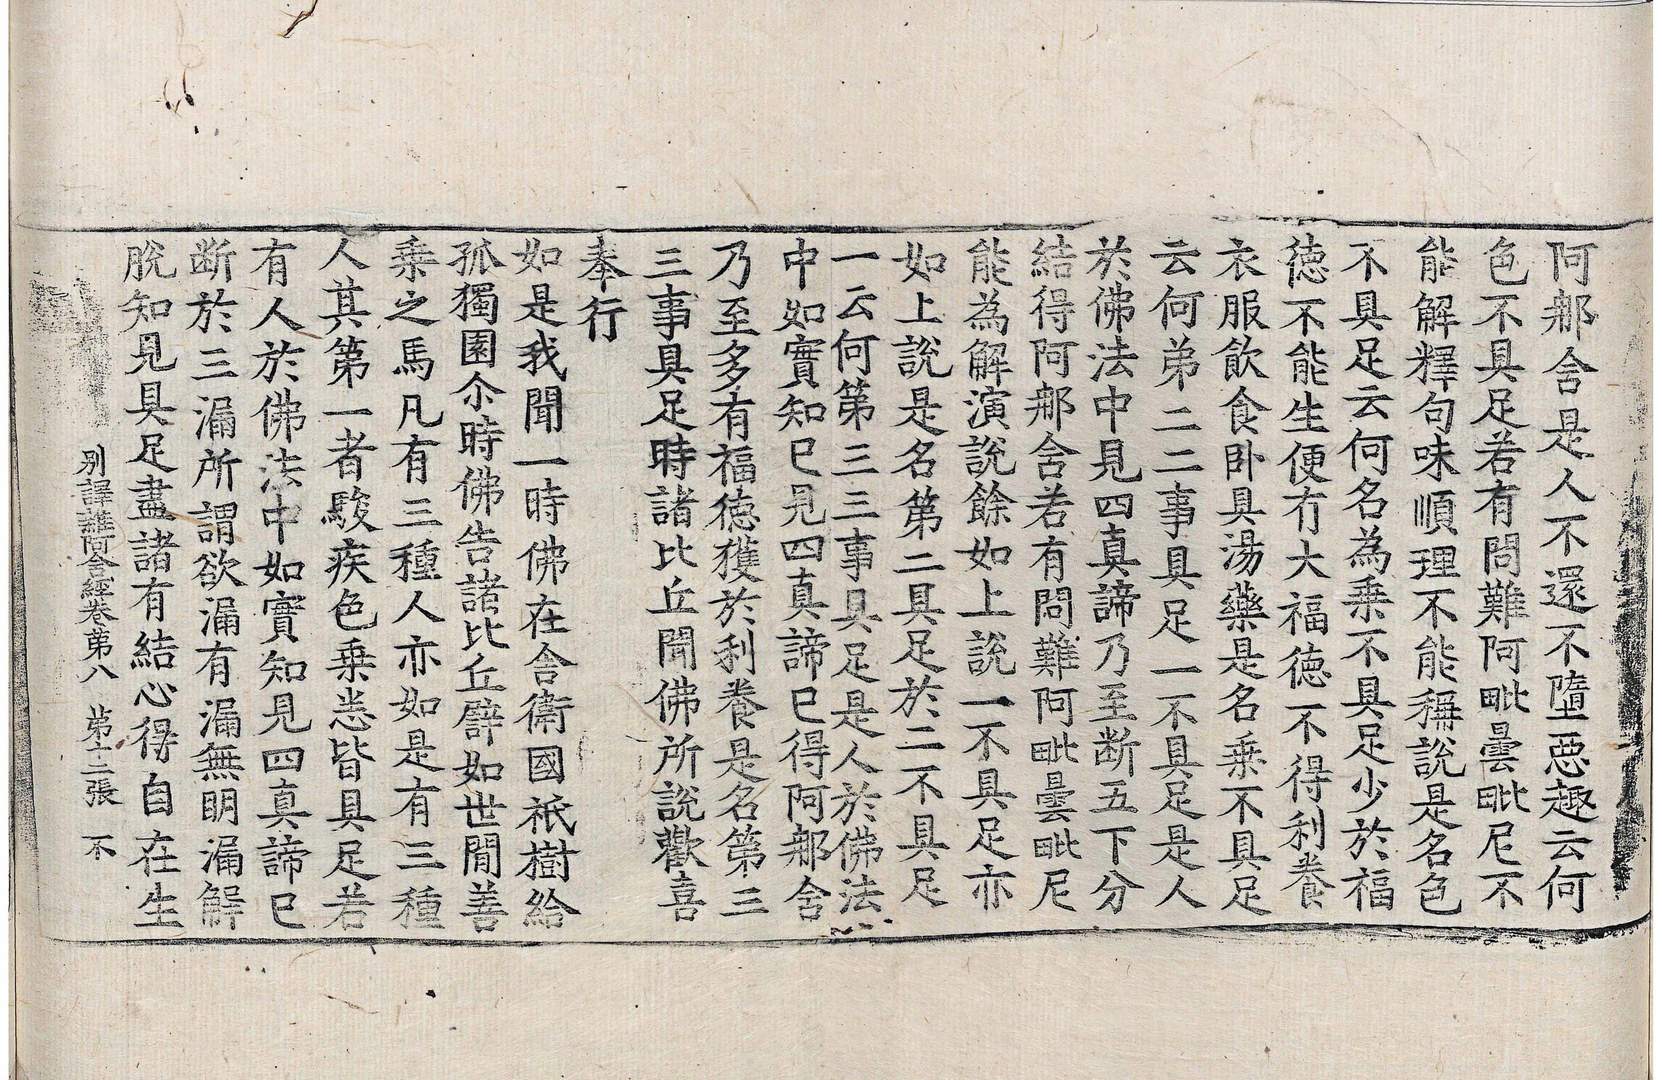 阿那含是人不還不墮惡趣云何
色不具足若有問難阿毗曇毗尼不
能解釋句味順理不能稱說是名色
不具足云何名為乘不具足少於福
德不能生便冇大福德不得利養
衣服飲食卧具湯藥是名乘不具足
云何弟二二事具足一不具足是人
於佛法中見四真諦乃至断五下分
結得阿那含若有問難阿毗曇毗尼
能為解演說餘如上說一不具足亦
如上說是名第二具足於二不具足
一云何第三三事具足是人於佛法
中如實知已見四真諦已得阿那含
乃至多有福德獲於利養是名第三
三事具足時諸比丘聞佛所說歡喜
奉行
如是我聞一時佛在舍衛國祇樹給
孤獨園尒時佛告諸比丘譬如世間善
乘之馬凡有三種人亦如是有三種
人其第一者駿疾色乗悉皆具足若
有人於佛法中如實知見四真諦已
断於三漏所謂欲漏有漏無明漏解
脫知見具足盡諸有結心得自在生
別譯雜阿含經卷苐八 苐十二張 不